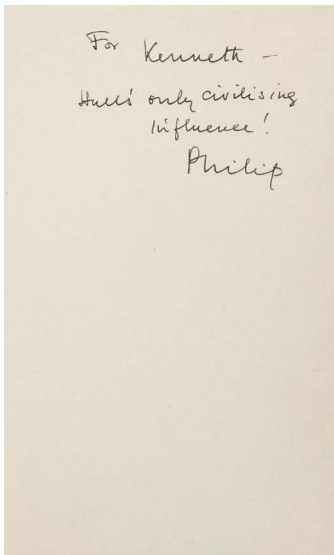 For Kenneth –
Hull's only civilising
influence!
Philip